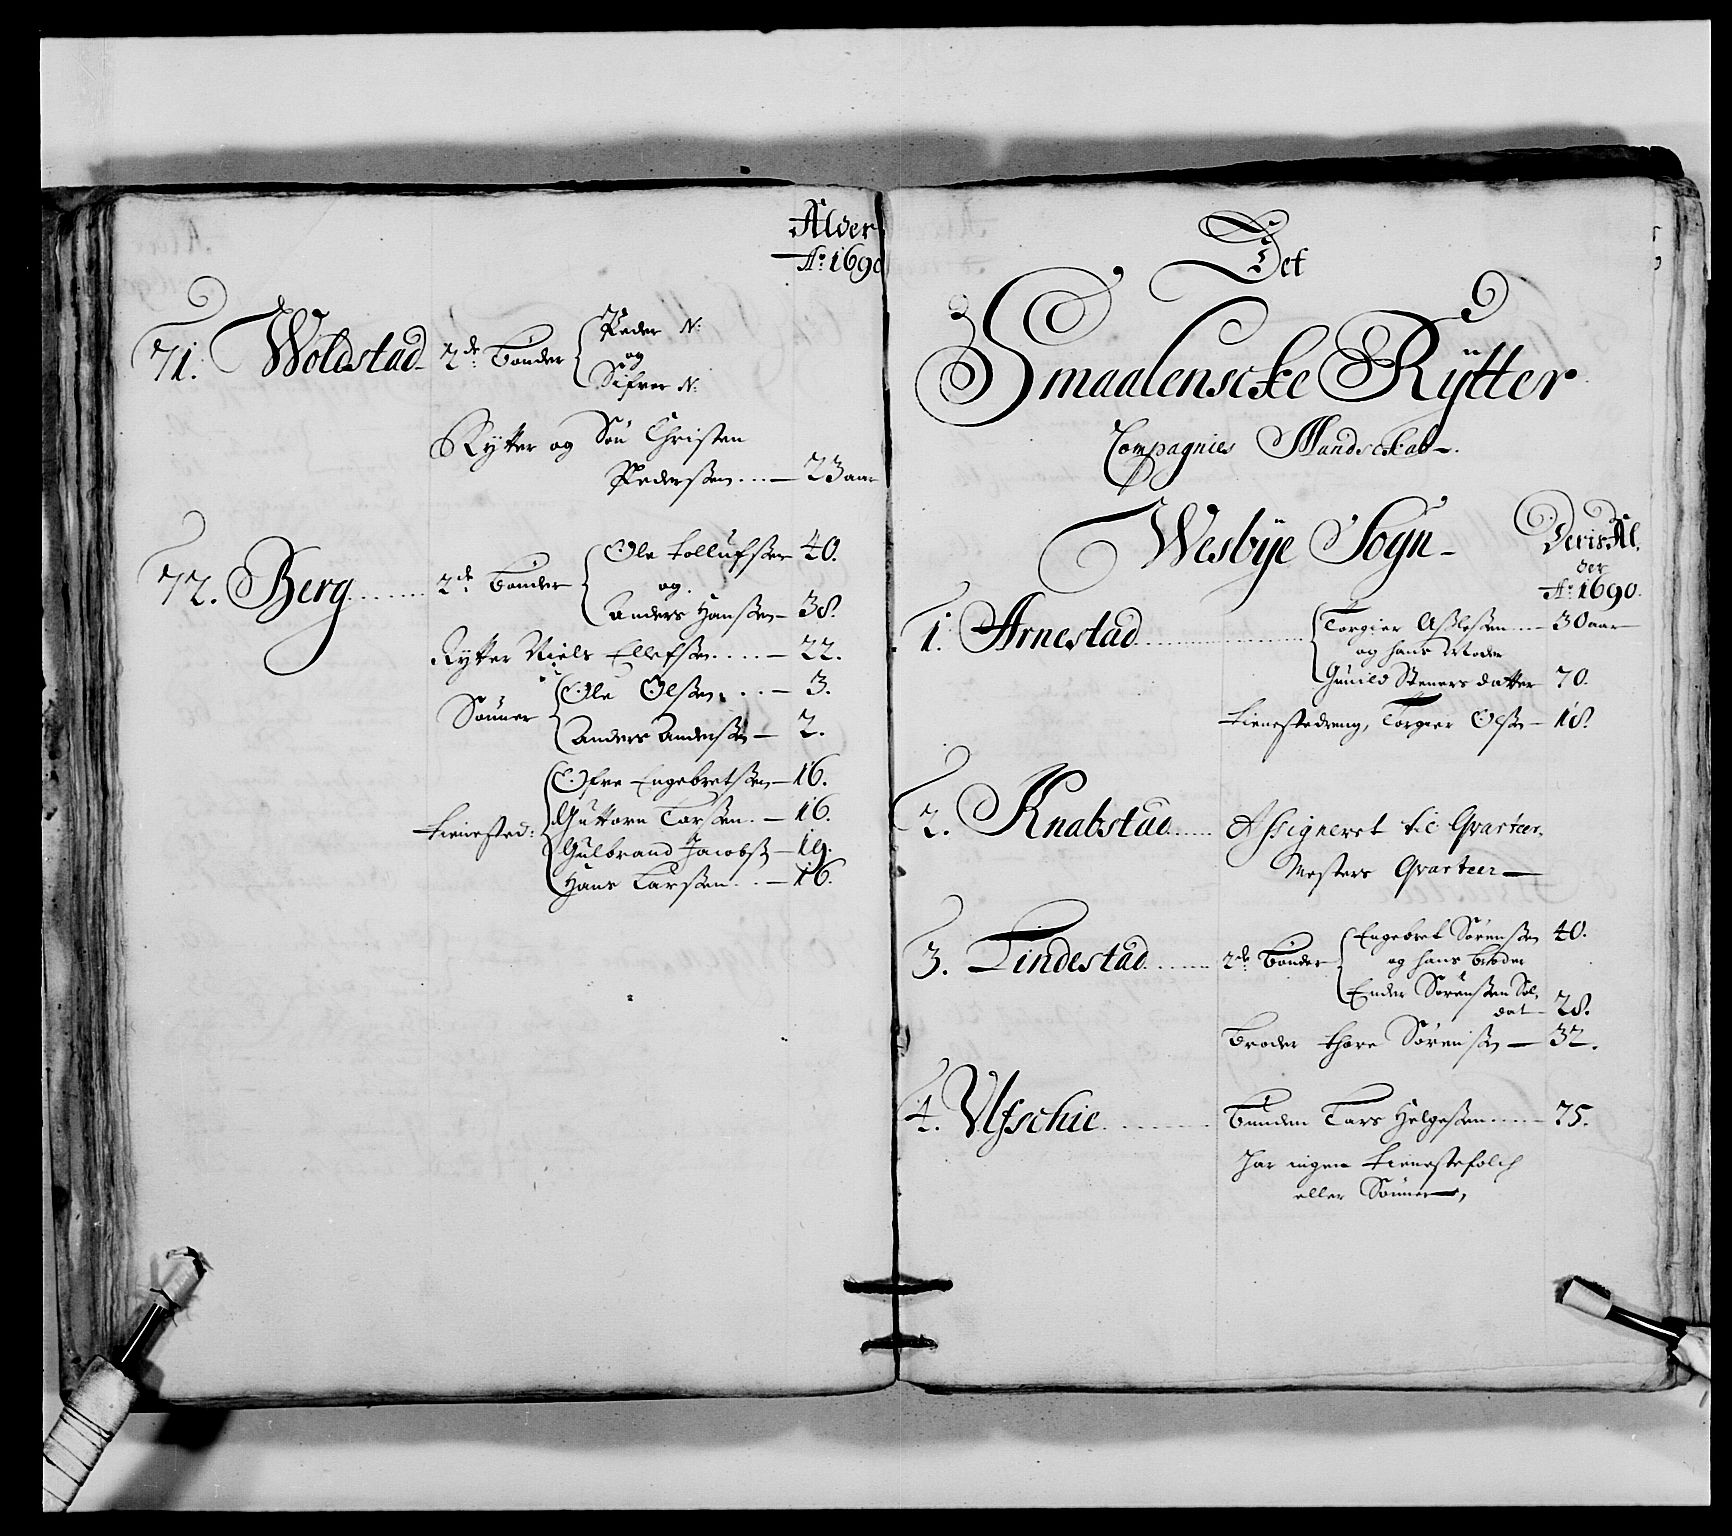 Alder
Ao: 1690
71. Woldstad 2de Bønder Peder N:
og
Sifver N:
Rytter og Søn Christen
Pedersen ... 23 aar
72. Berg ........ 2de Bønder Ole Tollufsen 40.
og
Anders Hansen 38.
Rytter Niels Ellefsen .... 22.
Sønner Ole Olsen ... 3.
Anders Andersen 2.
Tienested: Ofve Engebretsen 16.
Guttorm Larsen. 16.
Gulbrand Jacobs: 19.
Hans Larsen .. 16.
Det
Smaalenscke Rytter
Compagnies Mandsckab
Wesbye Sogn
Deris Al
der
Ao: 1690.
1. Arnestad Torgier Aslesen 30 aar
og hans Moder
Gunild Steners datter 70.
Tienestedreng, Torgier Ols: 18.
2. Knabstad Assigneret til Qvarteer
Mesters Qvarteer
3. Lindestad 2de Bønder Engebret Sørensen 40.
og hans broder
Ender Sørensen Sol
dat 28.
Broder Thore Sørens: 32.
4. Ulfschie Bunden Lars Helgesen 75.
Har ingen Tienestefolch
eller Sønner,